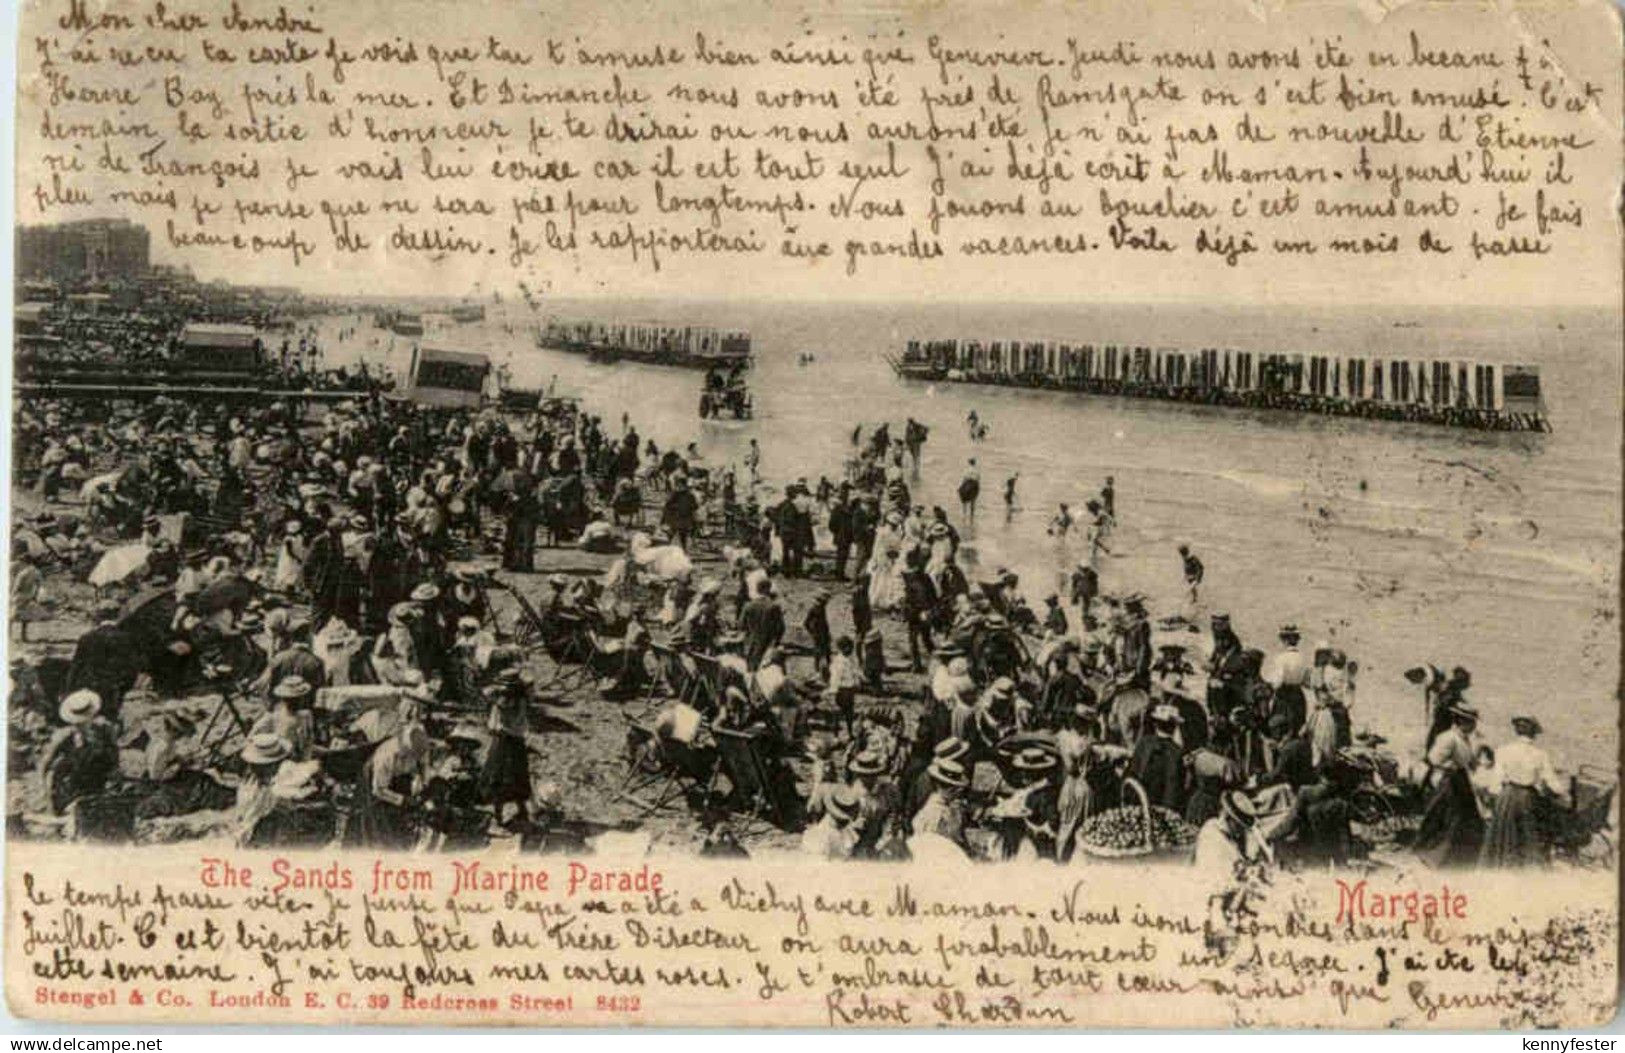 Mon cher André
J'ai recu ta carte je vois que tu t'amuse bien ainsi qué Geneviève. Jeudi nous avons été en becane à
Herne Bay près la mer. Et Dimanche nous avons été près de Ramsgate on s'est bien amusé. C'est
demain la sortie d'honneur je te drirai ou nous aurons été je n'ai pas de nouvelle d'Etienne
ni de François je vais lui écrire car il est tout seul J'ai déjà ecrit à Maman. Aujourd'hui il
pleu mais je pense que ne sera pas pour longtemps. Nous jouons au bouclier c'est amusant. Je fais
beaucoup de dessin. Je les rapporterai aux grandes vacances. Voila déjà un mois de passe
The Sands from Marine Parade
Margate
le temps passe vite. Je pense que Papa va a été a Vichy avec Maman. Nous irons a Londres dans le mois de
Juillet. C'est bientôt la fête du Frère Directeur on aura probablement un
cette semaine. J'ai toujours mes cartes roses. Je t'ombrasse de tout cœur ainsi que Geneviève
Stengel & Co. London E. C. 39 Redcross Street 8432
Robert Chardun
kennyfester